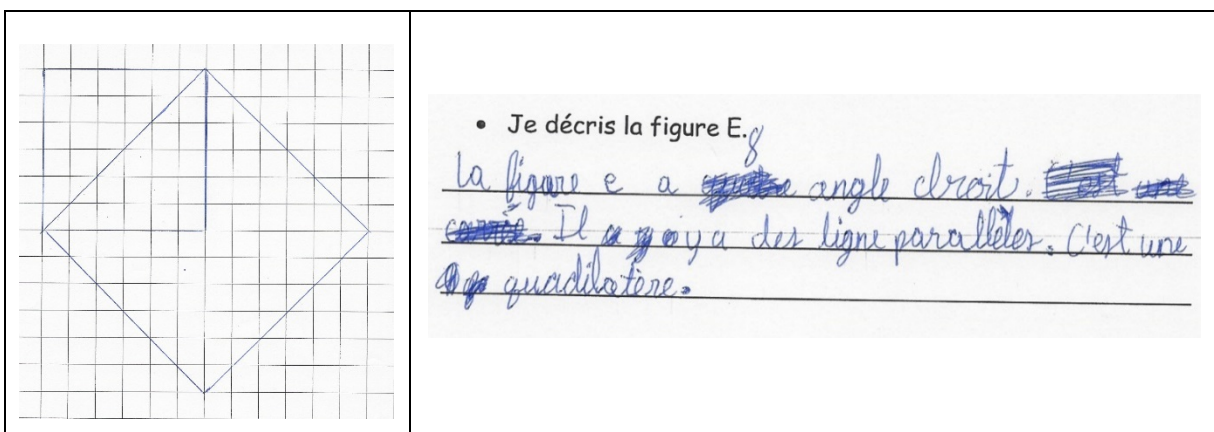 • Je décris la figure E.
8
La figure e a angle droit.
Il y a des ligne parallèles. C'est une
quadilatère.